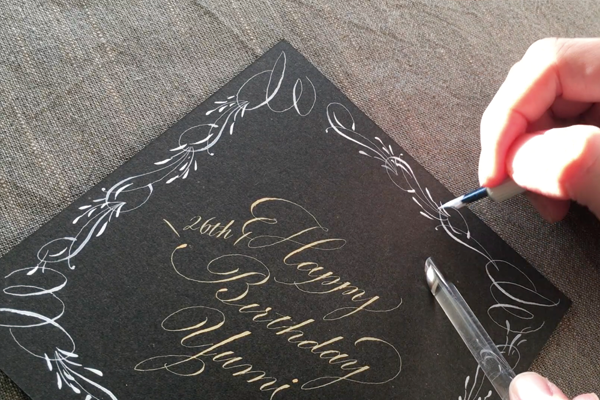 \ 26th /
Happy
Birthday
Yumi